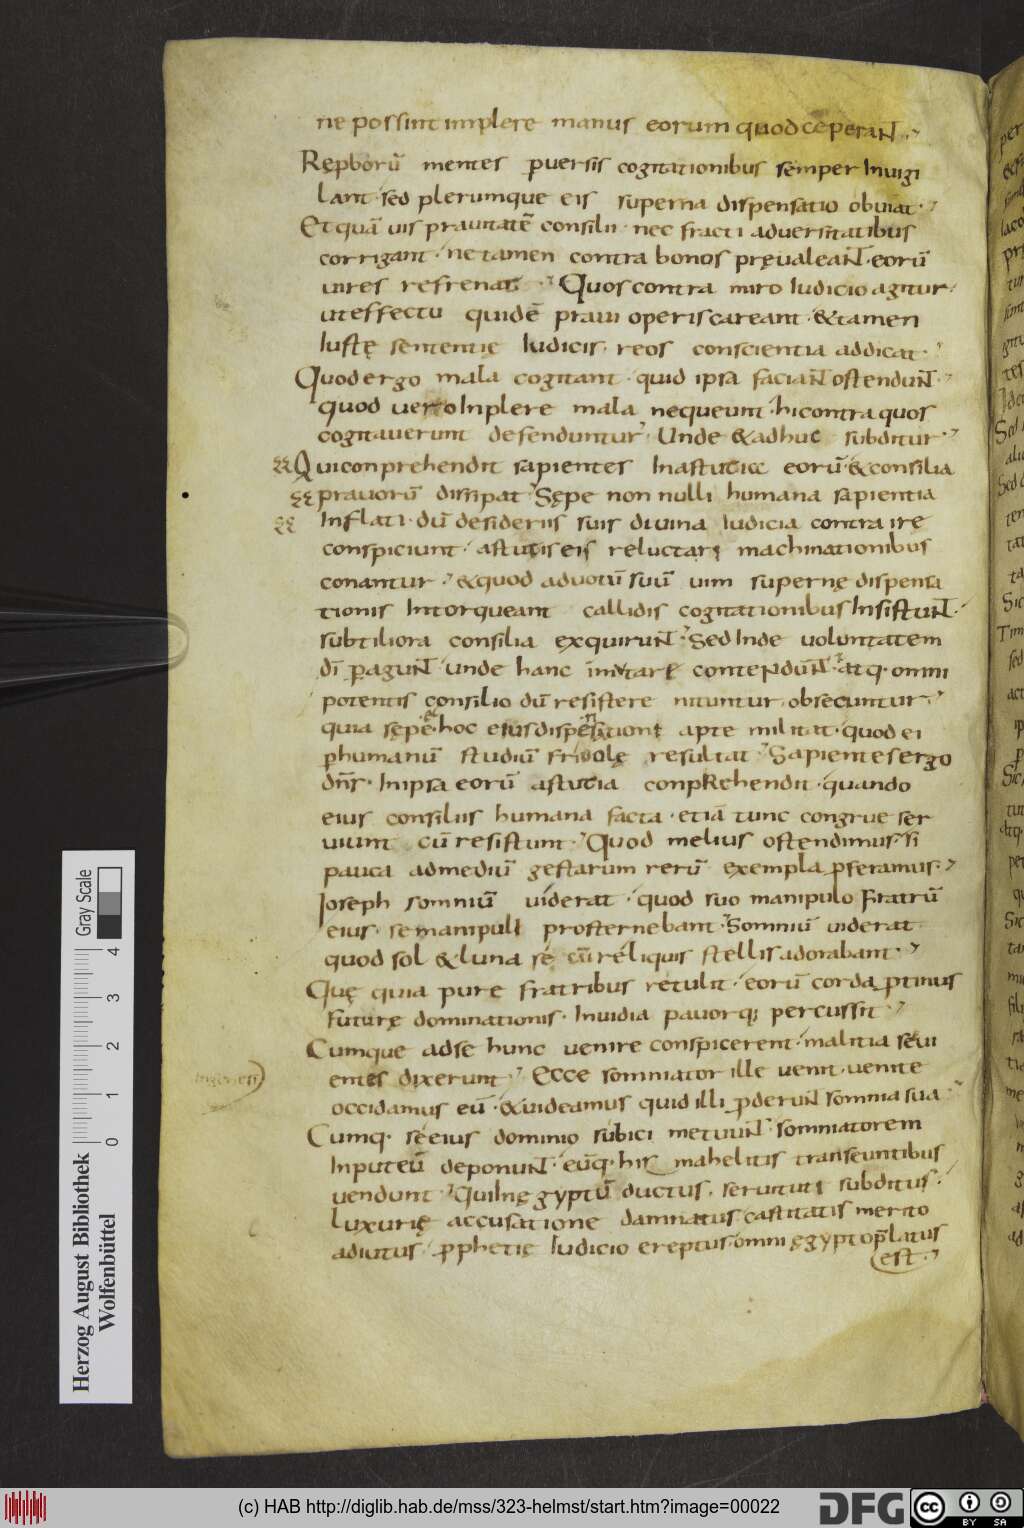 ne possint implere manus eorum quod ceperaɴ̄.
Rępborū mentes puersis cogitationibus semper Inuigi
lant. sed plerumque eis superna dispensatio obuiat.
Et quā uis prauitatē consilii. nec fracti aduersitatibus
corrigant. ne tamen contra bonos pręualeaɴ̄. eorū
uires refrenat. Quos contra miro Iudicio agitur.
ut effectu quidē praui operis careant. & tamen
Iustę sententię Iudicis. reos conscientia addicat.
Quod ergo mala cogitant. quid ipsa faciaɴ̄ ostenduɴ̄.
quod uero Inplere mala nequeunt. hi contra quos
cogitauerunt defenduntur. Unde & adhuc subditur.
Qui conprehendit sapientes In astutia eorū. & consilia
prauorū dissipat. Sępe non nulli humana sapientia
Inflati. dū desideriis suis diuina Iudicia contra ire
conspiciunt. astutis eis reluctari machinationibus
conantur. & quod ad uotū suū uim supernę dispensa
tionis Intorqueant callidis cogitationibus Insistuɴ̄.
subtiliora consilia exquiruɴ̄. Sed Inde uoluntatem
dī peraguɴ̄ unde hanc inmutare contenduɴ̄. atq. omni
potentis consilio dū resistere nituntur. obsecuntur.
quia sępe & hoc eius dispensationi apte militat. quod ei
phumanū studiū friuole resultat. Sapientes ergo
dn̄s. In ipsa eorū astutia conpRehendit. quando
eius consiliis humana facta. etiā tunc congrue ser
uiunt cū resistunt. Quod melius ostendimus. si
pauca ad mediū gestarum rerū exempla pferamus.
Ioseph somniū uiderat. quod suo manipulo Fratrū
eius. se manipuli prosternebant. Somniū uiderat
quod sol & luna se cū reliquis stellis adorabant.
Quę quia pure fratribus retulit. eorū corda ptinus
Futurę dominationis. Inuidia pauorq; percussit.
Cumque ad se hunc uenire conspicerent. malitia seui
entes dixerunt. Ecce somniator ille uenit. uenite
occidamus eū. & uideamus quid illi pderuɴ̄ somnia sua
Cumq. se eius dominio subici metuuɴ̄. somniatorem
In puteū deponuɴ̄. eūq. hismahelitis transeuntibus
uendunt. Qui In ęgyptū ductus. seruituti subditus.
Luxurię accusatione damnatus. castitatis merito
adiutus. pphetię Iudicio ereptus. omni ęgypto p̄latus
est.
Herzog August Bibliothek
Wolfenbüttel
Gray Scale
0 1 2 3 4
(c) HAB http://diglib.hab.de/mss/323-helmst/start.htm?image=00022
DFG
cc BY SA